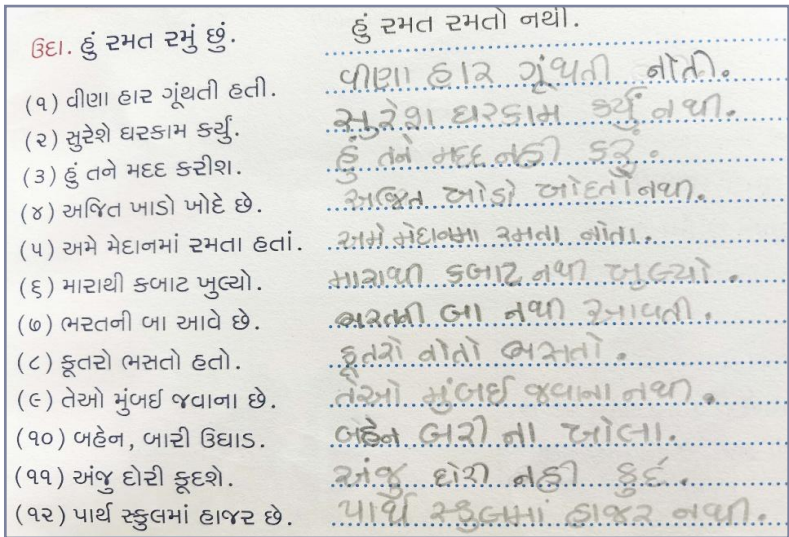 ઉદા. હું રમત રમું છું. હું રમત રમતો નથી.
(૧) વીણા હાર ગૂંથતી હતી. વીણા હાર ગૂંથતી નોતી.
(૨) સુરેશે ઘરકામ કર્યું. સુરેશ ઘરકામ કર્યું નથી.
(૩) હું તને મદદ કરીશ. હું તને મદદ નહી કરું.
(૪) અજિત ખાડો ખોદે છે. અજિત ખોડો ખોદતો નથી.
(૫) અમે મેદાનમાં રમતા હતાં. અમે મેદાનમા રમતા નોતા.
(૬) મારાથી કબાટ ખુલ્યો. મારાથી કબાટ નથી ખુલ્યો.
(૭) ભરતની બા આવે છે. ભરતની બા નથી આવતી.
(૮) કૂતરો ભસતો હતો. કૂતરો નોતો ભસતો.
(૯) તેઓ મુંબઈ જવાના છે. તેઓ મુંબઈ જવાના નથી.
(૧૦) બહેન, બારી ઉઘાડ. બહેન બારી ના ખોલા.
(૧૧) અંજુ દોરી કૂદશે. અંજુ દોરી નહી કુદે.
(૧૨) પાર્થ સ્કુલમાં હાજર છે. પાર્થ સ્કુલમાં હાજર નથી.